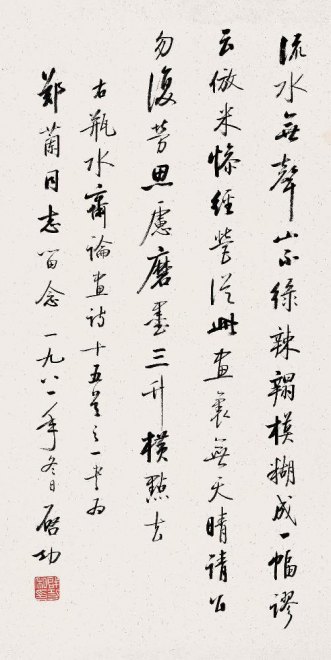 流水無聲山不綠辣蹋模糊成一幅謬
云倣米惨經營從此畫裏無天晴請公
勿復勞思慮磨墨三升横點去
右瓶水齋論畫詩十五首之一書爲
鄭蘭同志留念一九八一年冬日啓功